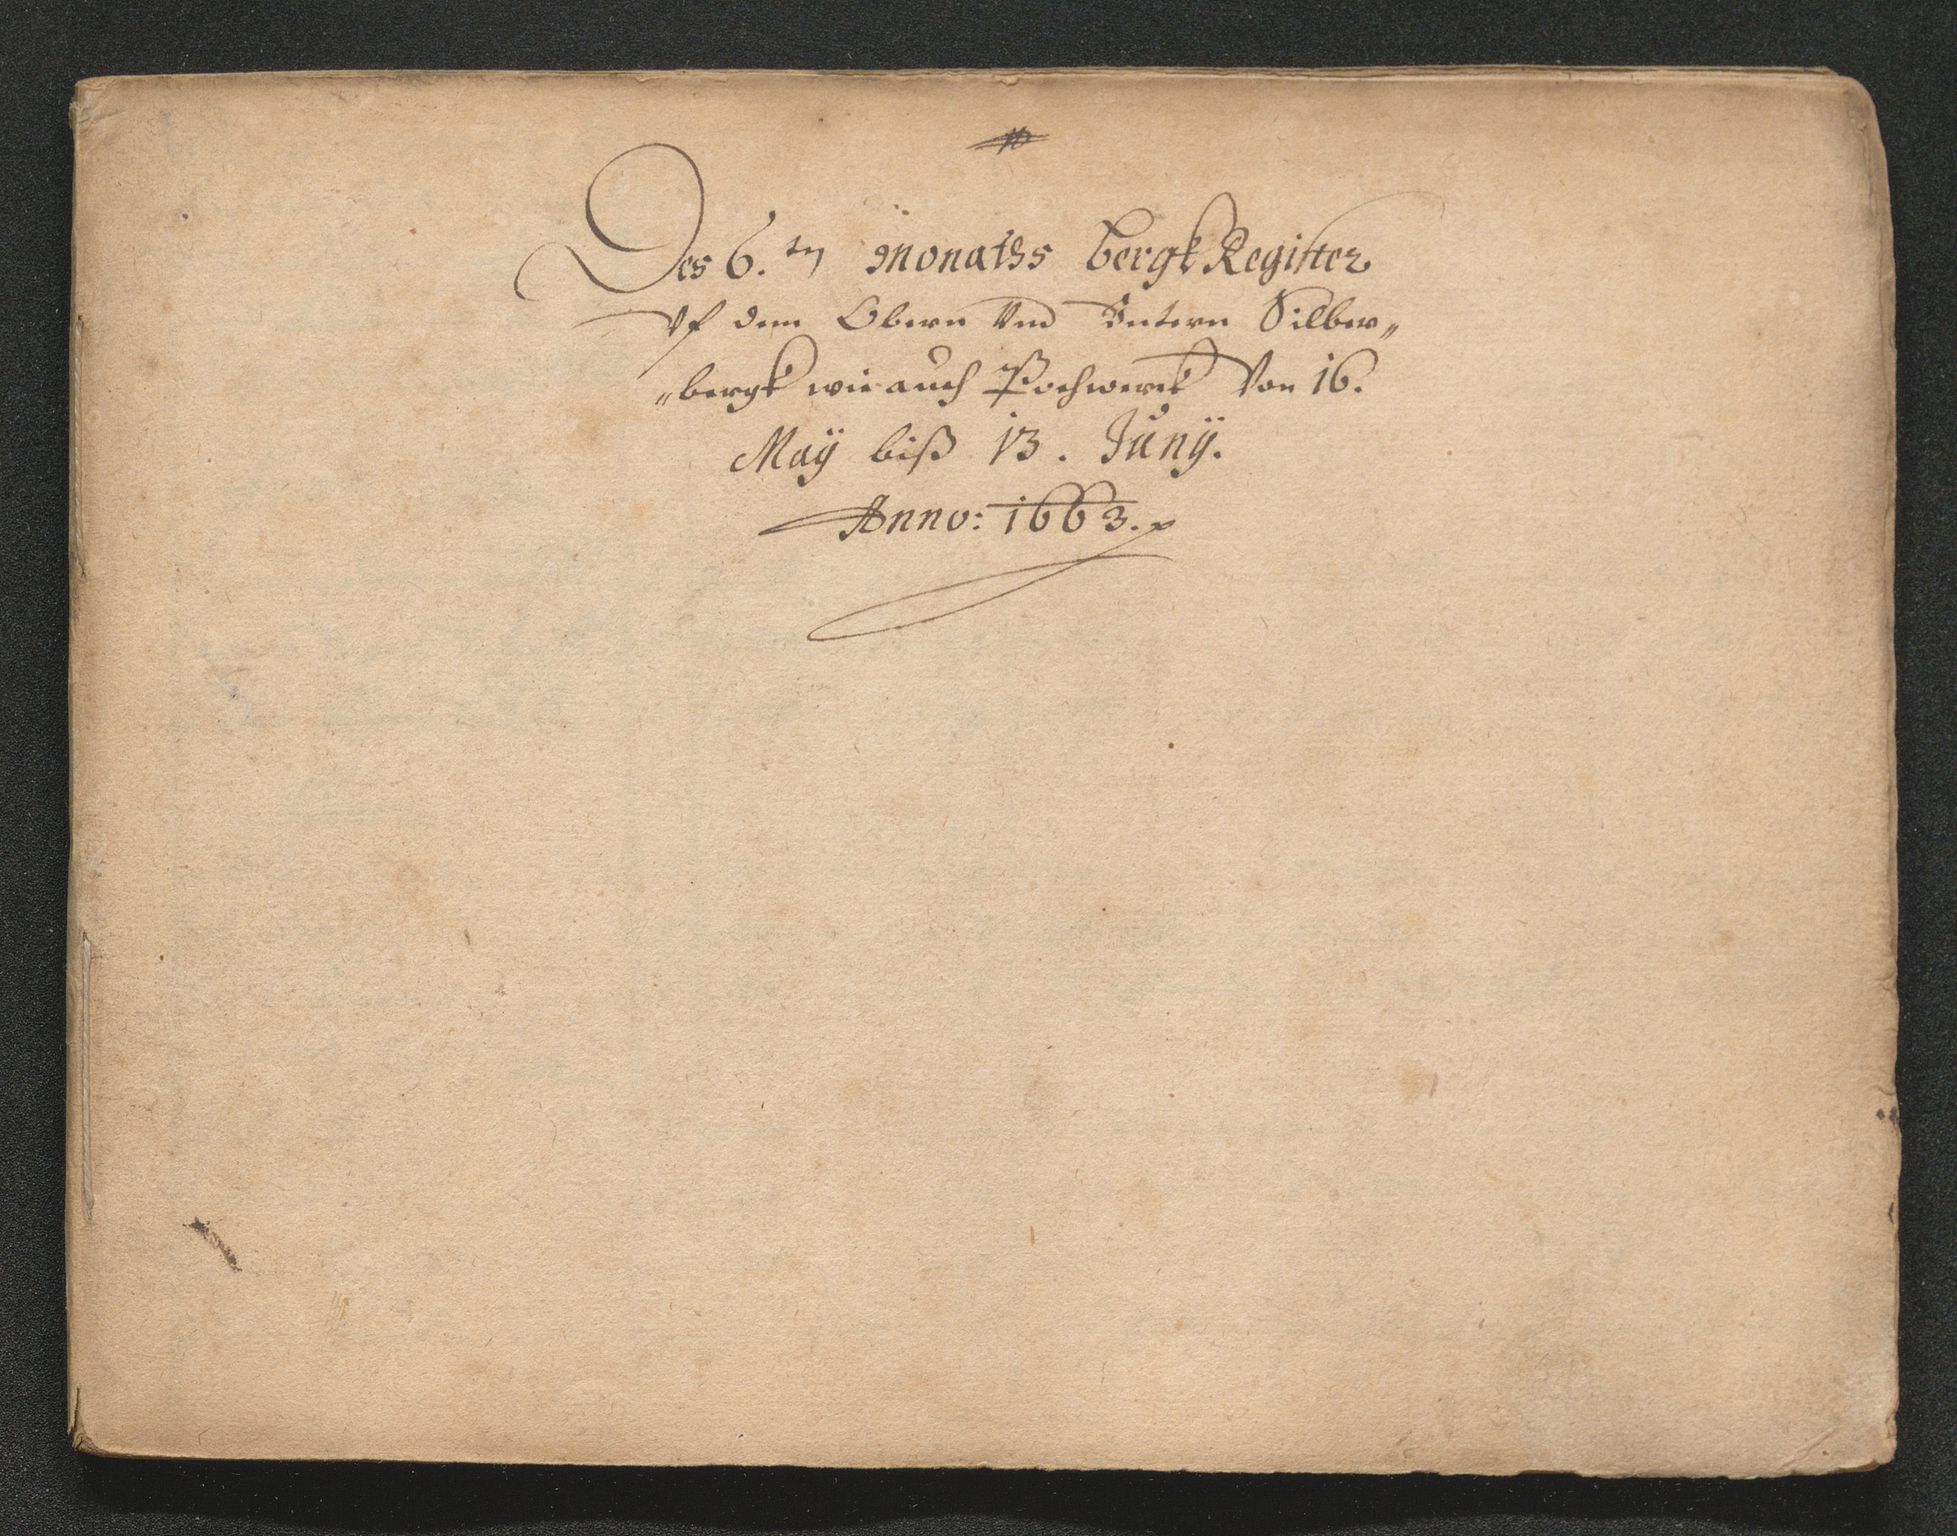 Des 6.tn Monaths bergk Register
Vf dem Obern Vnd Vntern Silber„
„bergk wie auch Pochwerck Von 16.
Maÿ biß 13. Junÿ.
Anno: 1663.